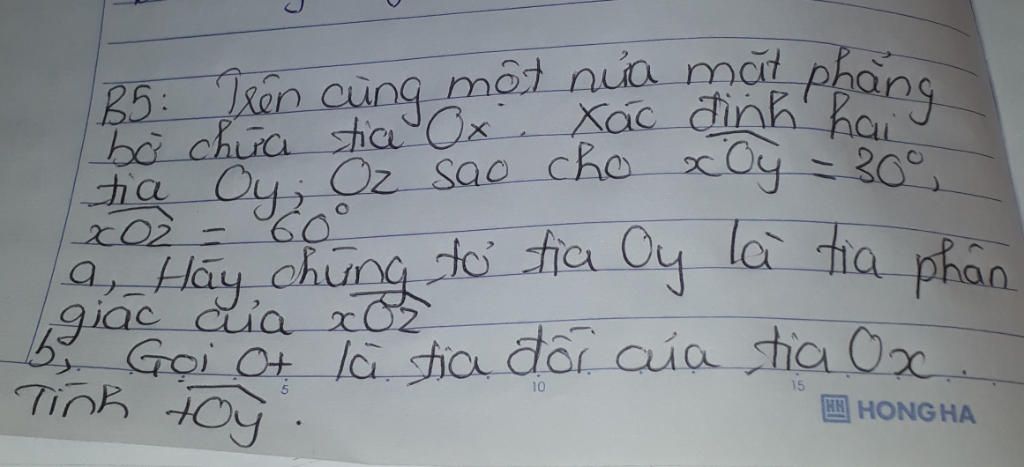 B5: Trên cùng một nửa mặt phẳng
bờ chứa tia Ox. Xác định hai
tia Oy; Oz sao cho xOy = 30°,
xOz = 60°
a, Hãy chứng tỏ tia Oy là tia phân
giác của xOz
b, Gọi Ot là tia đối của tia Ox.
Tính tOy.
5 10 15
HH HONG HA